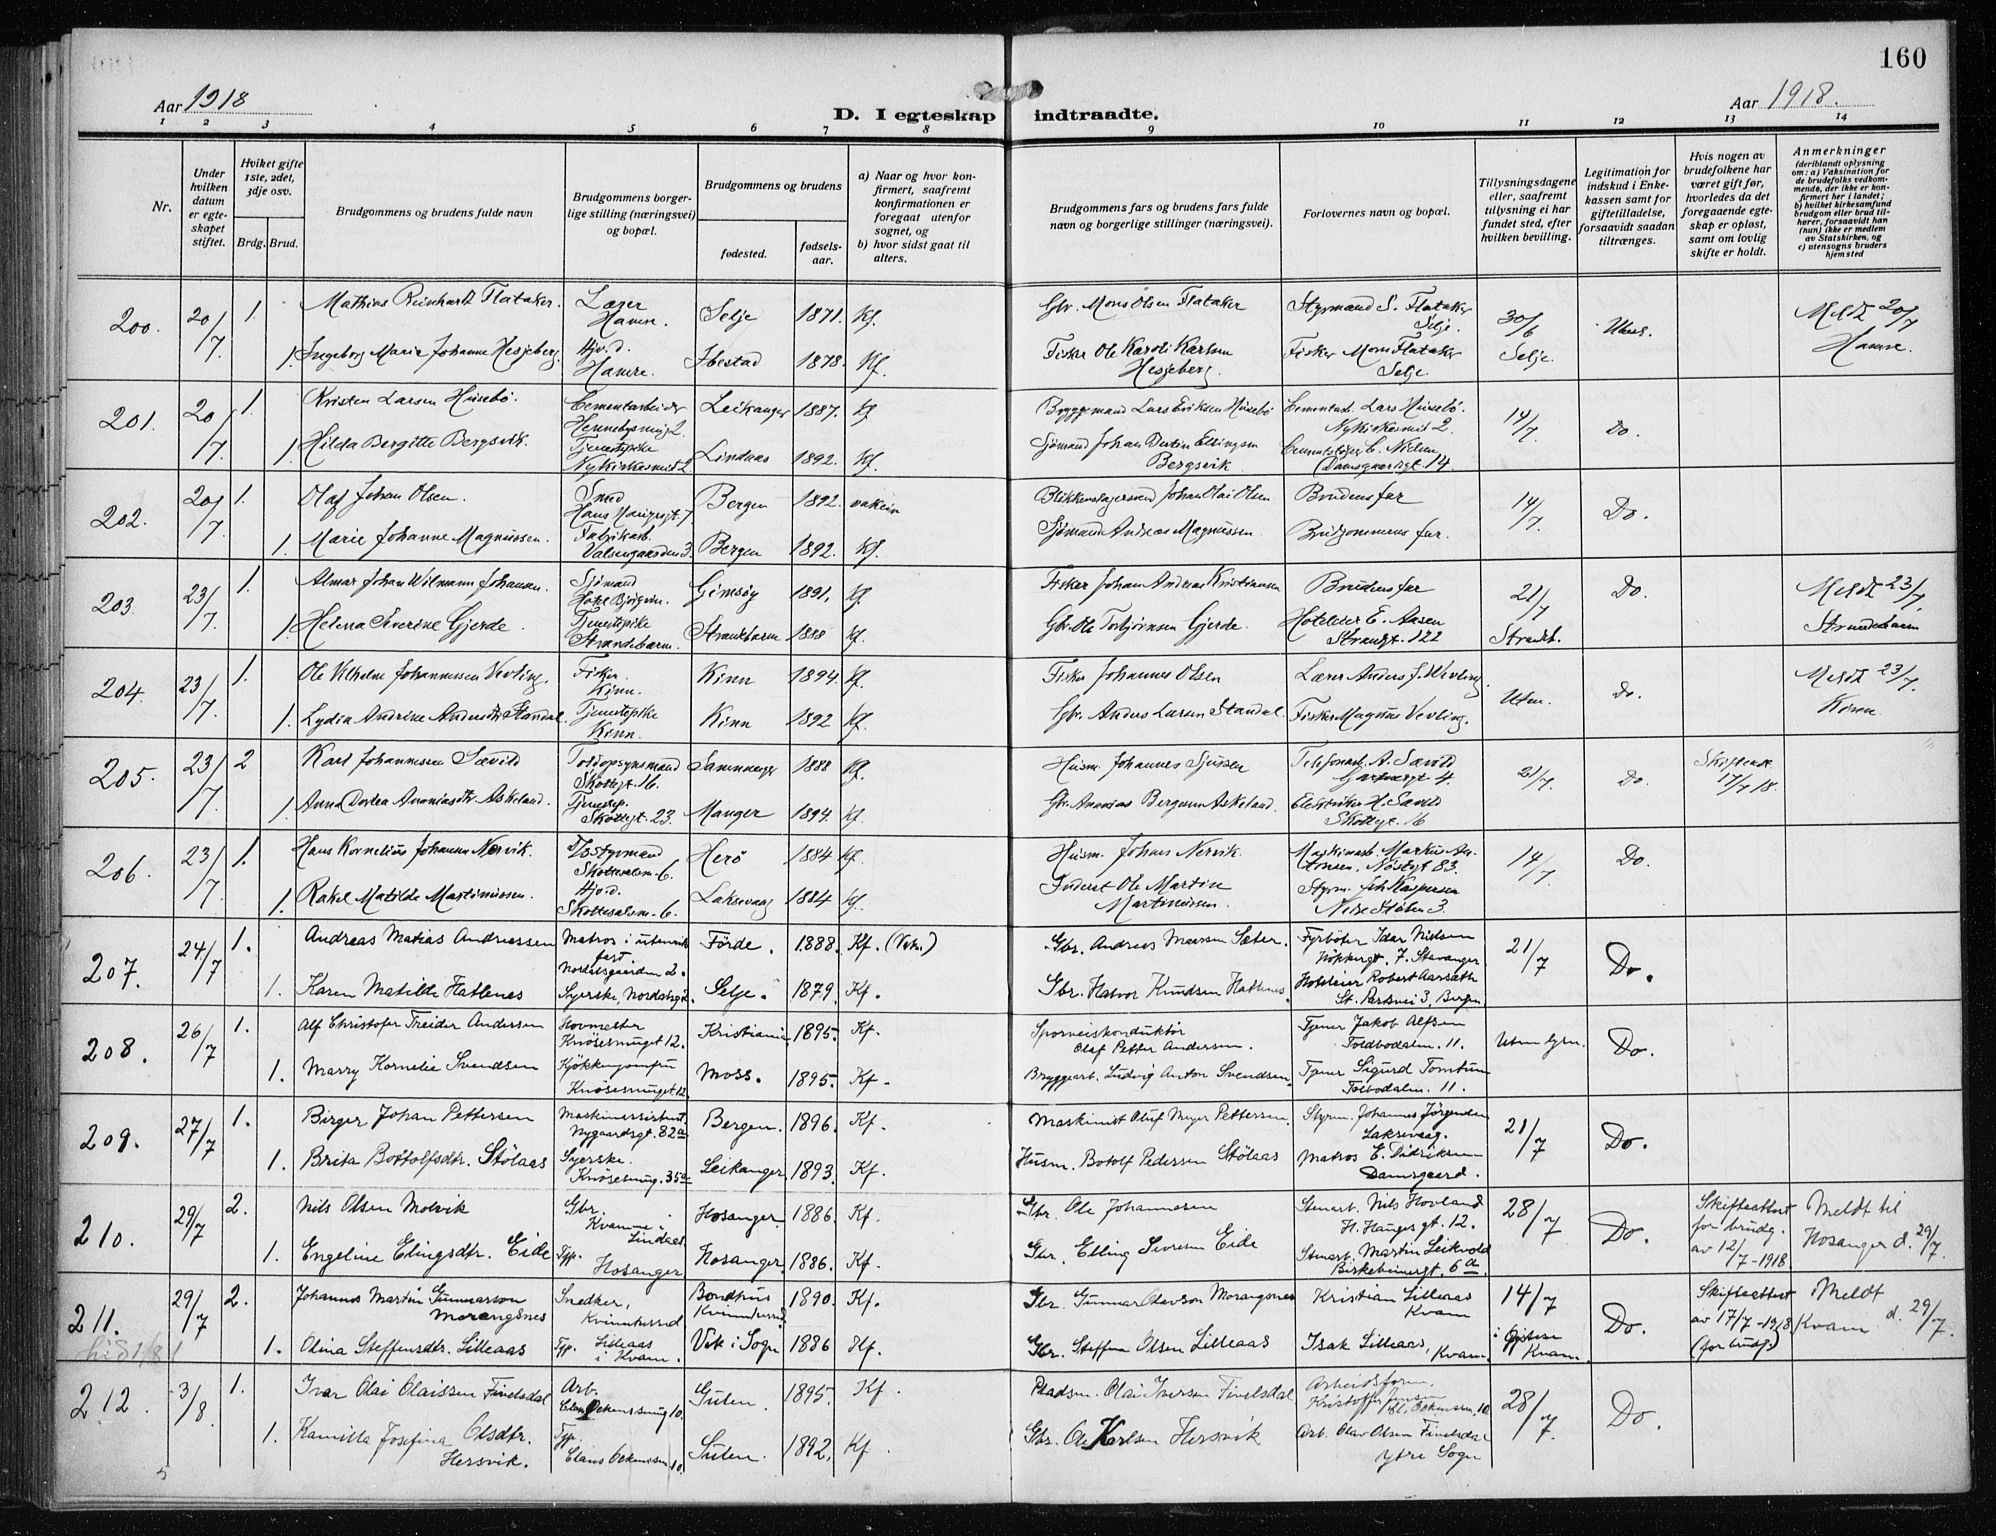 160
Aar 1918
D. I egteskap indtraadte.
Aar 1918.
1 2 3 4 5 6 7 8 9 10 11 12 13 14
Nr.
Under hvilken datum er egteskapet stiftet.
Hvilket gifte 1ste, 2det, 3dje osv.
Brdg. Brud.
Brudgommens og brudens fulde navn
Brudgommens borgerlige stilling (næringsvei) og bopæl.
Brudgommens og brudens
fødested.
fødselsaar.
a) Naar og hvor konfirmert, saafremt konfirmationen er foregaat utenfor sognet, og
b) hvor sidst gaat til alters.
Brudgommens fars og brudens fars fulde navn og borgerlige stillinger (næringsvei).
Forlovernes navn og bopæl.
Tillysningsdagene eller, saafremt tillysning ei har fundet sted, efter hvilken bevilling.
Legitimation for indskud i Enkekassen samt for giftetilladelse, forsaavidt saadan tiltrænges.
Hvis nogen av brudefolkene har været gift før, hvorledes da det foregaaende egteskap er opløst, samt om lovlig skifte er holdt.
Anmerkninger
(deriblandt oplysning om: a) Vaksination for de brudefolks vedkommende, der ikke er konfirmert her i landet;
b) hvilket kirkesamfund brudgom eller brud tilhører, forsaavidt han (hun) ikke er medlem av Statskirken, og
c) utensogns bruders hjemsted
200. 20/7 1. Mathias Reinhardt Flataker. Læger Hamre. Selje 1871. Kf. Gbr. Mons Olsen Flataker Styrmand S. Flataker Selje. 30/6 Selje. Meldt 20/7 Hamre.
1. Ingeborg Marie Johanne Hesjeberg. Hamre. Ibestad 1878. Kf. Fisker Ole Karoli Karlsen Hesjeberg. Fisker Mons Flataker Selje.
201. 20/7 1. Kristen Larsen Husebö. Cementarbeider 2. Leikanger 1887. Kf Bryggemand Lars Eriksen Husebö Cementarb. Lars Husebö. Nykirkesmut 2 14/7. Do.
1. Hilda Bergitte Bergsvik. Tjenestepike Nykirkesmut 2 Lindaas 1892. Kf. Sjømand Johan Martin Ellingsen Bergsvik. C. Nielsen Damsgaardsgt. 14
202. 20/7 1. Olaf Johan Olsen. Smed Hans Haugesgt. 7 Bergen 1892. Johan Olai Olsen Brudens far 14/7. Do.
1. Marie Johanne Magnussen. Fabrikarb. 3. Bergen 1892. Kf. Sjømand Andreas Magnussen Brudgommens far.
203. 23/7 1. Almar Johan Wilmann Johansen. Sjömand Hotel Bjørgvin. Gimsöy 1891. Kf. Fisker Johan Andreas Kristiansen Brudens far 21/7 Strandb. Do. Meldt 23/7. Strandebarm
1. Helena Severine Gjerde. Tjenestepike Strandebarm. Strandebarm 1888 Kf. Gbr. Ole Torbjörnsen Gjerde. Hoteleier E. Aasen Strandgt. 122
204. 23/7 1. Ole Vilhelm Johannessen Vevling. Fisker Kinn. Kinn 1894. Kf. Fisker Johannes Olsen Lærer Anders J. Wevling. Utm. Do. Meldt 23/7. Kinn
1. Lydia Andrine Andersdtr Standal. Tjenestepike Kinn. Kinn 1892 Kf. Gbr. Anders Larsen Standal. Fisker Magnus Vevling.
205. 23/7 2 Karl Johannessen Sævild Toldopsynsmand Skottegt. 16. Samnanger 1888 Kf. Husm. Johannes Sjursen Telefonarb. A. Sævild 4. 21/7. Do. Skifteatt. 17/7 18.
1. Anna Dortea Ananiasdtr. Askeland. Tjenestep. Skottegt. 23. Manger 1894. Kf. Gbr. Ananias Bergesen Askeland. Elektriker H. Sævild Skottegt. 16
206. 23/7 1. Hans Kornelius Johansen Nervik. Skottesalm. 6. Herö 1884 Kf. Husm. Johans Nervik. Maskinarb. Markus Antonsen, Nöstegt 83. 14/7. Do.
1. Rakel Matilde Martinussen. Skottesalm. 6. Laksevaag 1884 Kf. Inderst Ole Martin Martinussen. Styrm. Joh Kaspersen Nedre Stölen 3.
207. 24/7 1. Andreas Matias Andreassen Matros i utenriksfart Nordalsgaarden 2. Förde. 1888. Kf. Gbr. Andreas Sæter. Fyrböter Idar Nielsen 7. Stavanger 21/7 Do.
1. Karen Matilde Hatlenes Syerske, Selje. 1879. Kf. Gbr. Halvor Knudsen Hatlenes. Hoteleier Robert Aarsæth St. Parkvei 3, Bergen
208. 26/7 1. Alf Christofer Treider Andersen Hovmester Knösesmuget 12. Kristiania 1895. Kf. Sporveiskonduktör Olaf Petter Andersen. Tjener Jakob Alfsen Toldbodalm. 11. Do.
1. Marry Kornelie Svendsen Kjökkenjomfru Knösesmuget 12. Moss. 1895. Kf. Bryggearb. Ludvig Anton Svendsen. Tjener Sigurd Tomtum Tolbodalm. 11.
209. 27/7 1. Birger Johan Pettersen Maskinassistent Nygaardsgt. 82a Bergen. 1896. Kf. Maskinist Oluf Meyer Pettersen. Styrm. Johannes Jørgensen Laksevaag. 21/7 Do.
1. Brita Bottolfsdtr. Stölaas Syerske. Knösesmug. 35a Leikanger 1893. Kf. Husm. Botolf Pedersen Stölaas Matros E. Didriksen Damsgaard.
210. 29/7 2. Nils Olsen Molvik Gbr. Kvamme i Lindaas. Hosanger 1886. Kf. Gbr. Ole Johannesen Stuearb. Nils Hovland H. Hauges gt. 12. 28/7 Do. Skifteattest for brudg. av 12/7-1918 Meldt til Hosanger d. 29/7.
1. Engeline Elingsdtr. Eide Tjp. Hosanger Hosanger. 1886. Kf. Gbr. Elling Iversen Eide Stuearb. Martin Leikvold Birkebeinergt. 6a.
211. 29/7 2. Johannes Martin Gunnarson Morangsnes Snedker, Kvinnherred Bondhus Kvinnherred 1890. Kf. Gbr. Gunnar Olavson Morangsnes Kristian Lilleaas Kvam 14/7 i Kvam. Do. Skifteattest av 17/7-1918 (for brudg.) Meldt Kvam d. 29/7.
1. Olina Steffensdtr. Lilleaas Tjp. Lilleaas i Kvam. Vik i Sogn 1886 Kf. Gbr. Steffen Olsen Lilleaas Isak Lilleaas, Kvam.
212. 3/8 1. Ivar Olai Olaissen Fivelsdal Arb. 10. Gulen. 1895. Kf. Pladsm. Olai Iversen Fivelsdal Arbeidsform. Kristoffer Jensen 10 28/7. Do.
1. Kamilla Josefina Olsdtr. Hersvik. Tjp. 10. Sulen. 1892. Kf. Gbr. Ole Karlsen Hersvik Arb. Olav Olsen Fivelsdal Ytre Sogn